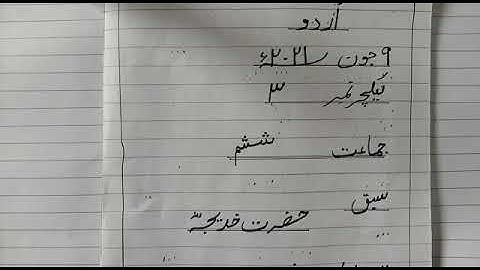 اُردو
۹ جون ۲۰۲۱ء
لیکچر نمبر ۳
جماعت ششم
سبق
حضرت خدیجہؓ